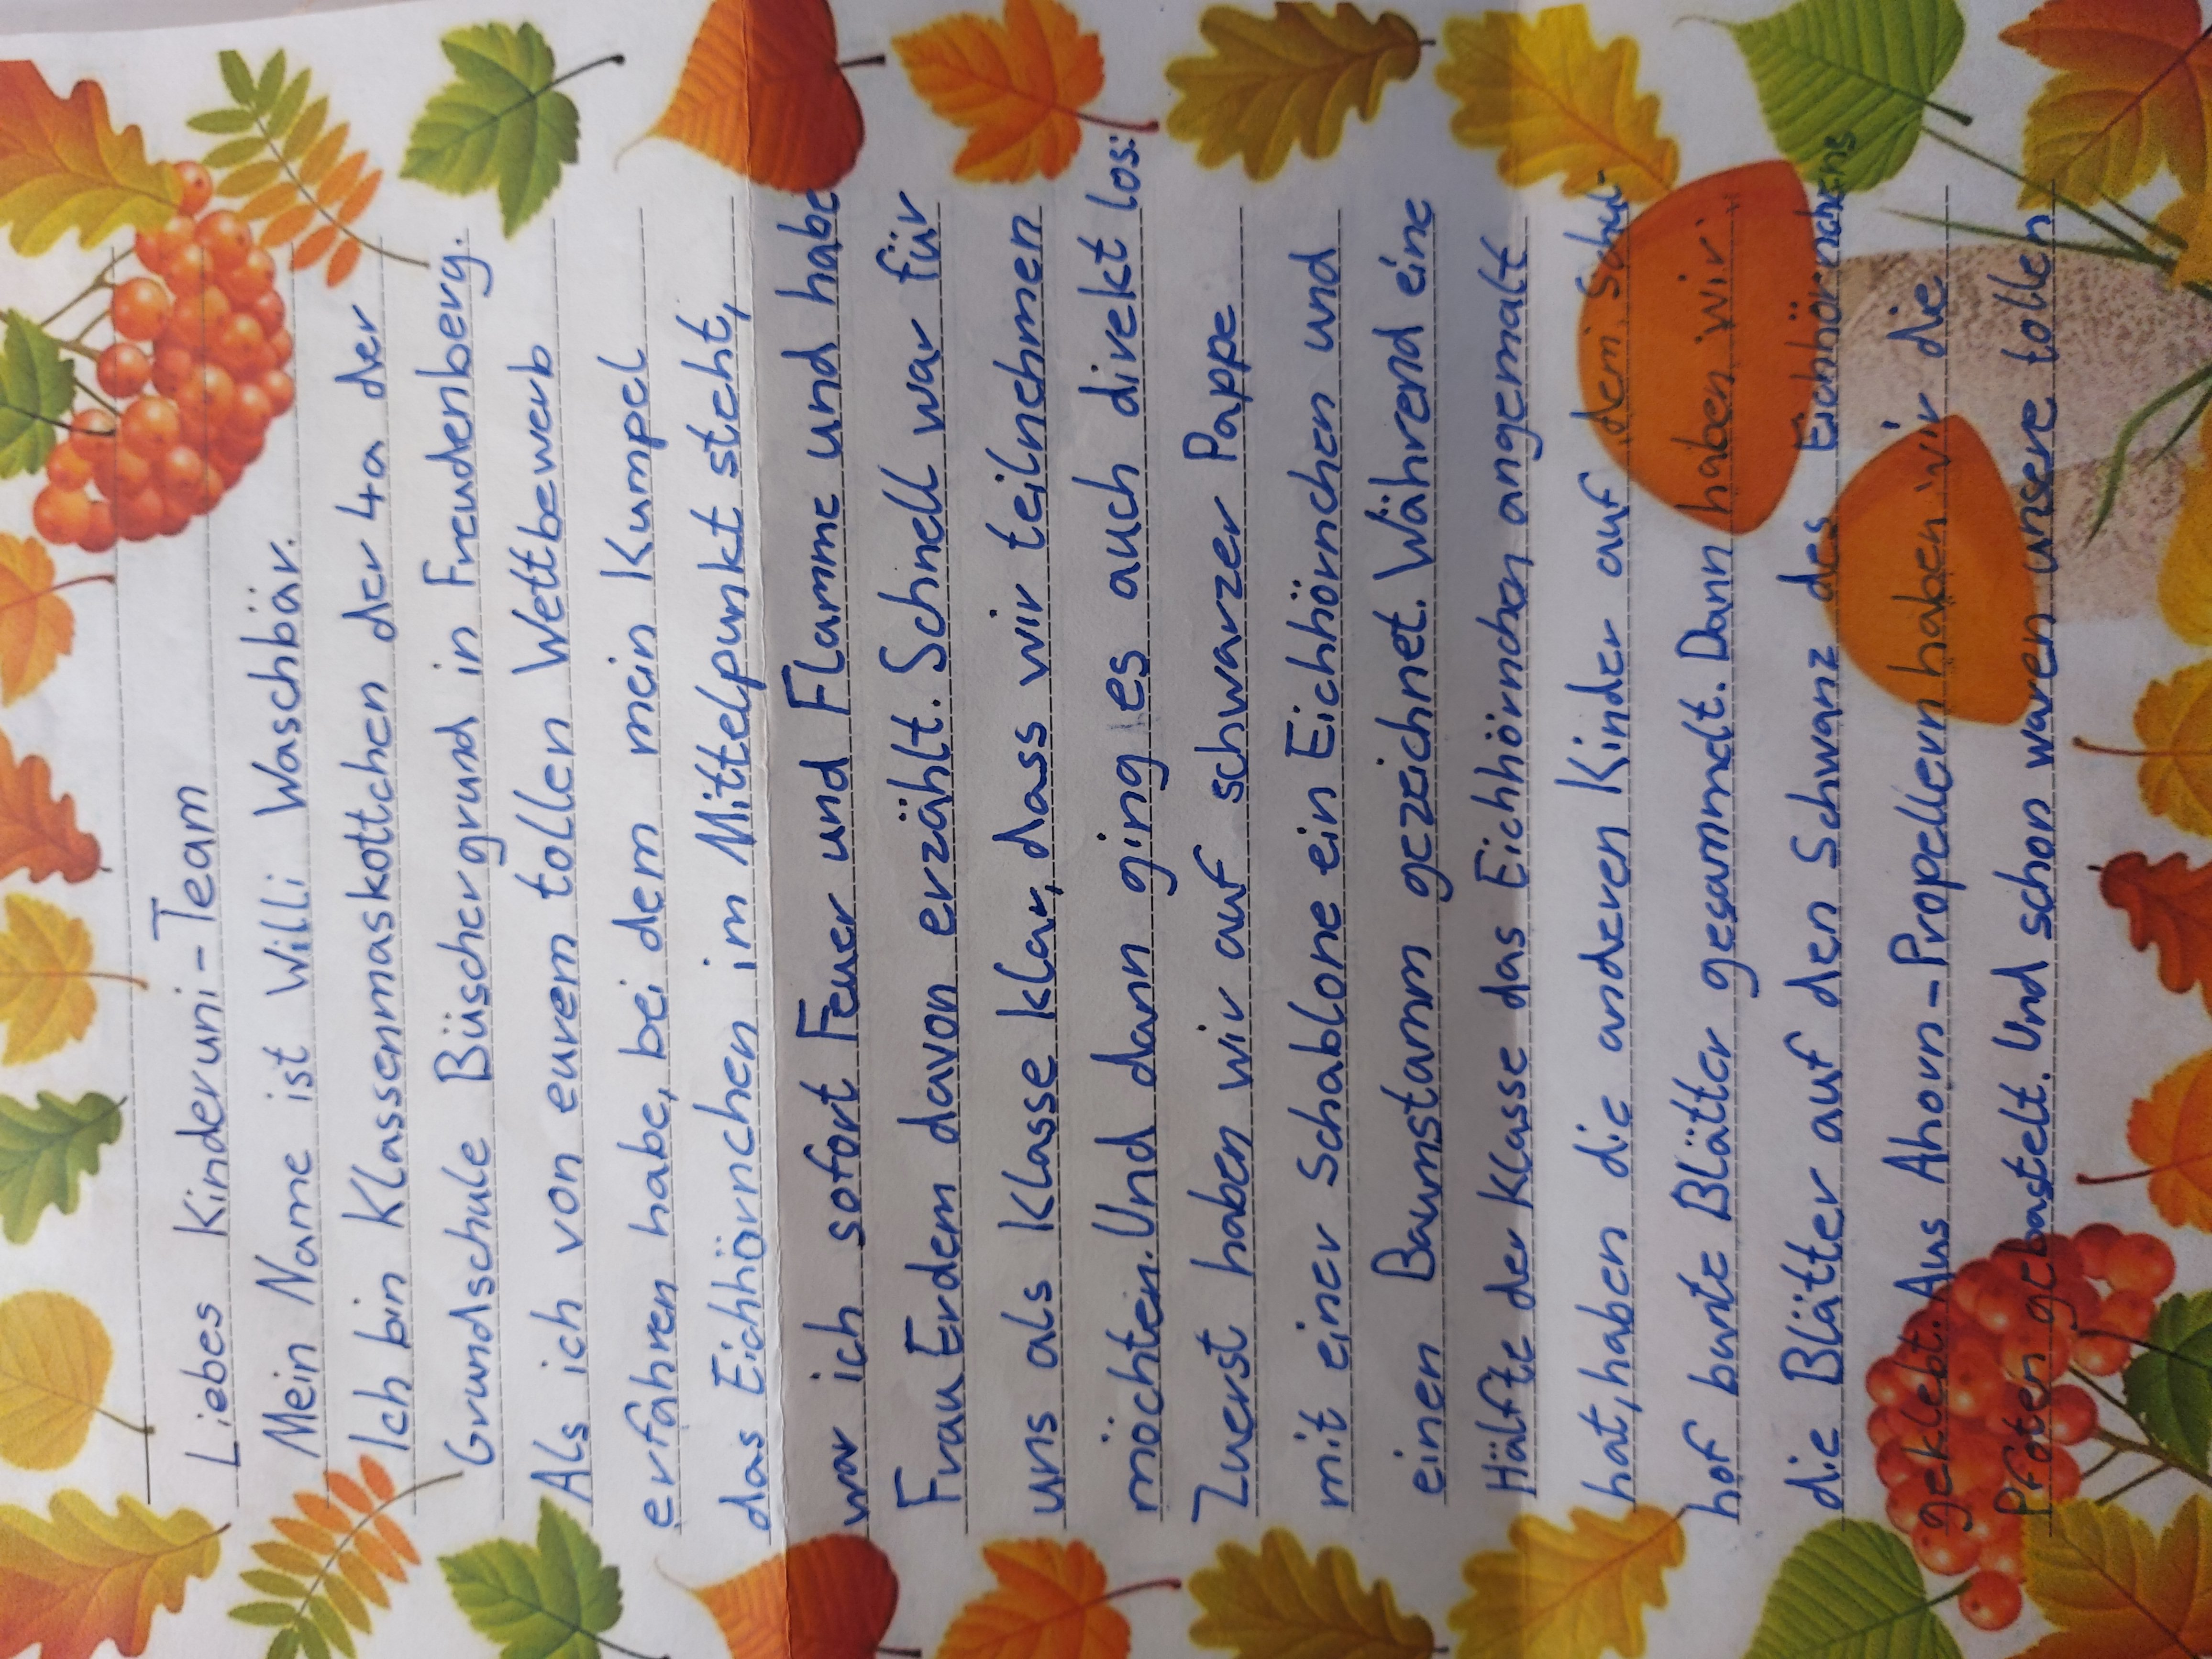 Liebes Kinderuni-Team
Mein Name ist Willi Waschbär.
Ich bin Klassenmaskottchen der 4a der
Grundschule Büschergrund in Freudenberg.
Als ich von eurem tollen Wettbewerb
erfahren habe, bei dem mein Kumpel
das Eichhörnchen im Mittelpunkt steht,
war ich sofort Feuer und Flamme und habe
Frau Erdem davon erzählt. Schnell war für
uns als Klasse klar, dass wir teilnehmen
möchten. Und dann ging es auch direkt los:
Zuerst haben wir auf schwarzer Pappe
mit einer Schablone ein Eichhörnchen und
einen Baumstamm gezeichnet. Während eine
Hälfte der Klasse das Eichhörnchen angemalt
hat, haben die anderen Kinder auf dem Schul-
hof bunte Blätter gesammelt. Dann haben wir
die Blätter auf den Schwanz des Eichhörnchens
geklebt. Aus Ahorn-Propellern haben wir die
Pfoten gebastelt. Und schon waren unsere tollen